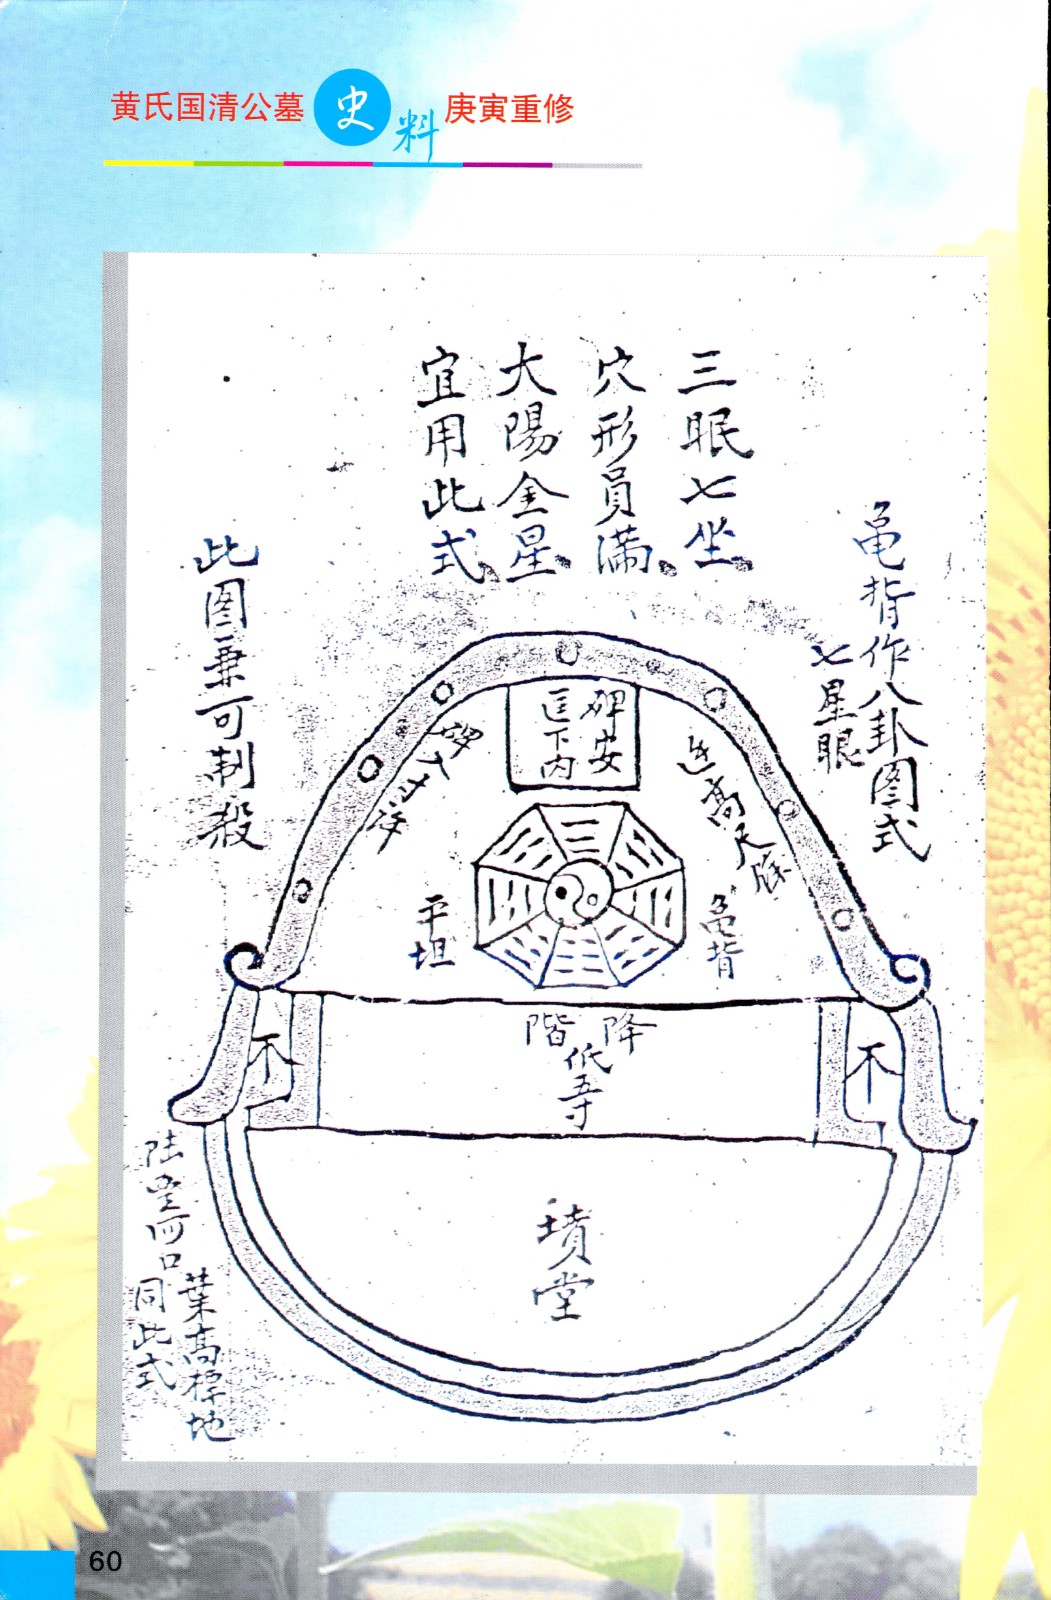 黄氏国清公墓史料庚寅重修
三眠七坐
穴形員满
大陽金星
宜用此式
龟背作八卦图式
七星眼
此图兼可制殺
碑安
匡下内
碑入寸
高尺
平坦
龟背
降
階
低五寸
不
不
墳堂
葉高標地
同此式
60